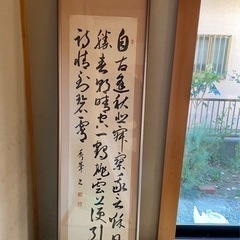 自古逢秋悲寂寥我言秋日
勝春朝晴空一鶴排雲上便引
詩情到碧霄